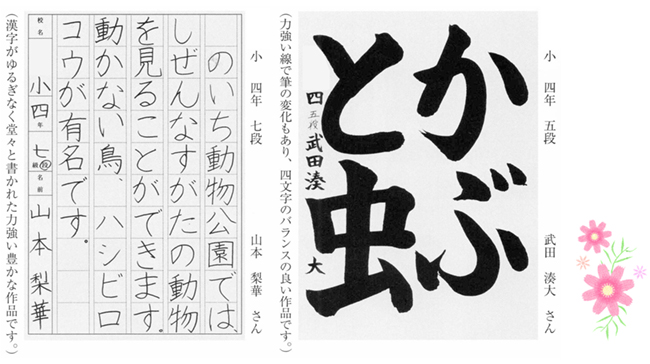 小 四年 五段 武田 湊大 さん
かぶ
と虫
四 五段 武田湊大
（力強い線で筆の変化もあり、四文字のバランスの良い作品です。）
小 四年 七段 山本 梨華 さん
のいち動物公園では、
しぜんなすがたの動物
を見ることができます。
動かない鳥、ハシビロ
コウが有名です。
校名 小四年 七級段 名前 山本梨華
（漢字がゆるぎなく堂々と書かれた力強い豊かな作品です。）